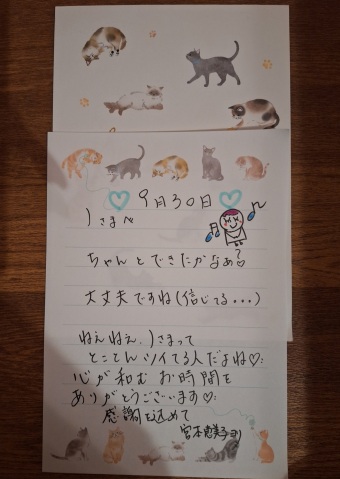 9月30日
Jさまへ
ちゃんとできたかなぁ?
大丈夫ですね(信じてる...)
ねぇねぇ、Jさまって
とことんツイてる人だよね♡
心が和むお時間を
ありがとうございます♡
感謝を込めて
宮本恵美子より